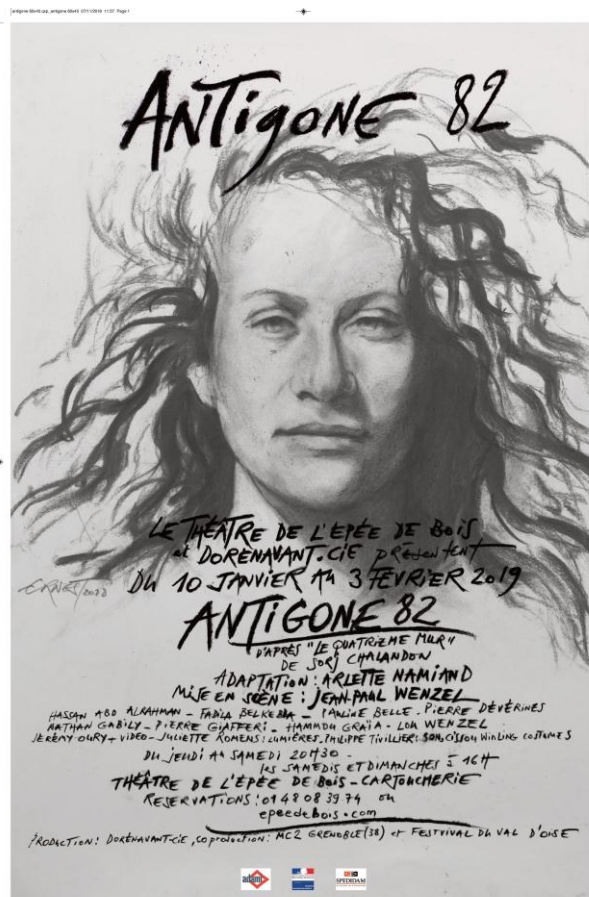 antigone 60x40.qxp_antigone 60x40 07/11/2018 11:07 Page1
ANTigONE 82
LE THÉÂTRE DE L'EPÉE DE BOIS
et DORENAVANT.CIE présentent
ERNEST 2018
DU 10 JANVIER AU 3 FÉVRIER 2019
ANTIGONE 82
D'APRÈS "LE QUATRIÈME MUR"
DE SORJ CHALANDON
ADAPTATION : ARLETTE NAMIAND
MISE EN SCÈNE : JEAN-PAUL WENZEL
HASSAN ABD ALRAHMAN - FADILA BELKEBLA - PAULINE BELLE - PIERRE DEVÉRINES
NATHAN GABILY - PIERRE GIAFFERI - HAMMOU GRAÏA - LOU WENZEL
JÉRÉMY OURY + VIDEO - JULIETTE ROMENS : LUMIÈRES. PHILIPPE TIVILLIER : SON, CISSOU WINLING COSTUMES
DU JEUDI AU SAMEDI 20H30 -
les SAMEDIS ET DIMANCHES à 16H
THÉÂTRE DE L'ÉPÉE DE BOIS - CARTOUCHERIE
RESERVATIONS : 01 48 08 39 74 ou
epeedebois.com
PRODUCTION : DORENAVANT-CIE, coproduction : MC2 GRENOBLE (38) et FESTVIVAL DU VAL D'OISE
adami
SPEDIDAM